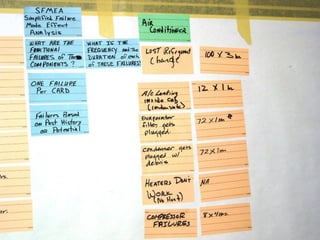 SFMEA
Simplified Failure
Mode Effect
Analysis
WHAT ARE THE
FUNCTIONAL
FAILURES of These
COMPONENTS?
WHAT IS THE
FREQUENCY and the
DURATION of each
of THESE FAILURES?
ONE FAILURE
Per CARD
Failures Based
on Past History
or Potential
Air
Conditioner
LOST Refrigerant
Charge
100 x 3 hr
A/C Leaking
inside cab
(condensate)
12 x 1 hr
Evaporator
filter gets
plugged
72 x 1 hr *
condenser gets
plugged w/
debris
72 x 1 hr
HEATERS Don't
WORK
(No Heat)
NA
COMPRESSOR
FAILURES
8 x 4 hrs